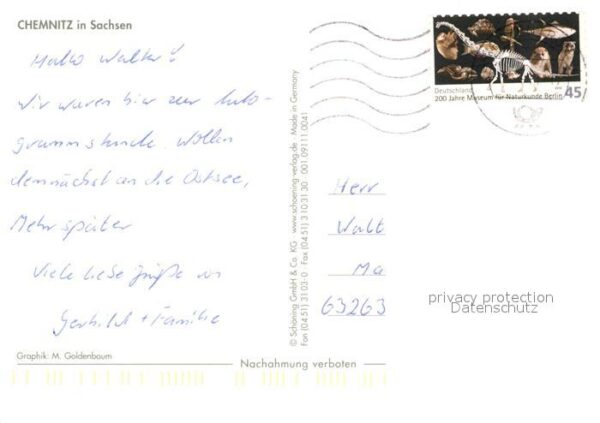 CHEMNITZ in Sachsen
Hallo Walter!
Wir waren hier zur Auto-
grammstunde. Wollen
demnächst an die Ostsee,
Mehr später
Viele liebe Grüße von
Gerhild + Familie
Graphik: M. Goldenbaum
Nachahmung verboten
© Schöning GmbH & Co. KG · www.schoening-verlag.de · Made in Germany
Fon (04 51) 31 03-0 · Fax (04 51) 3 10 31 30 · 001 09111 0041
Deutschland
200 Jahre Museum für Naturkunde Berlin
45
Herr
Walt
Ma
63263
privacy protection
Datenschutz